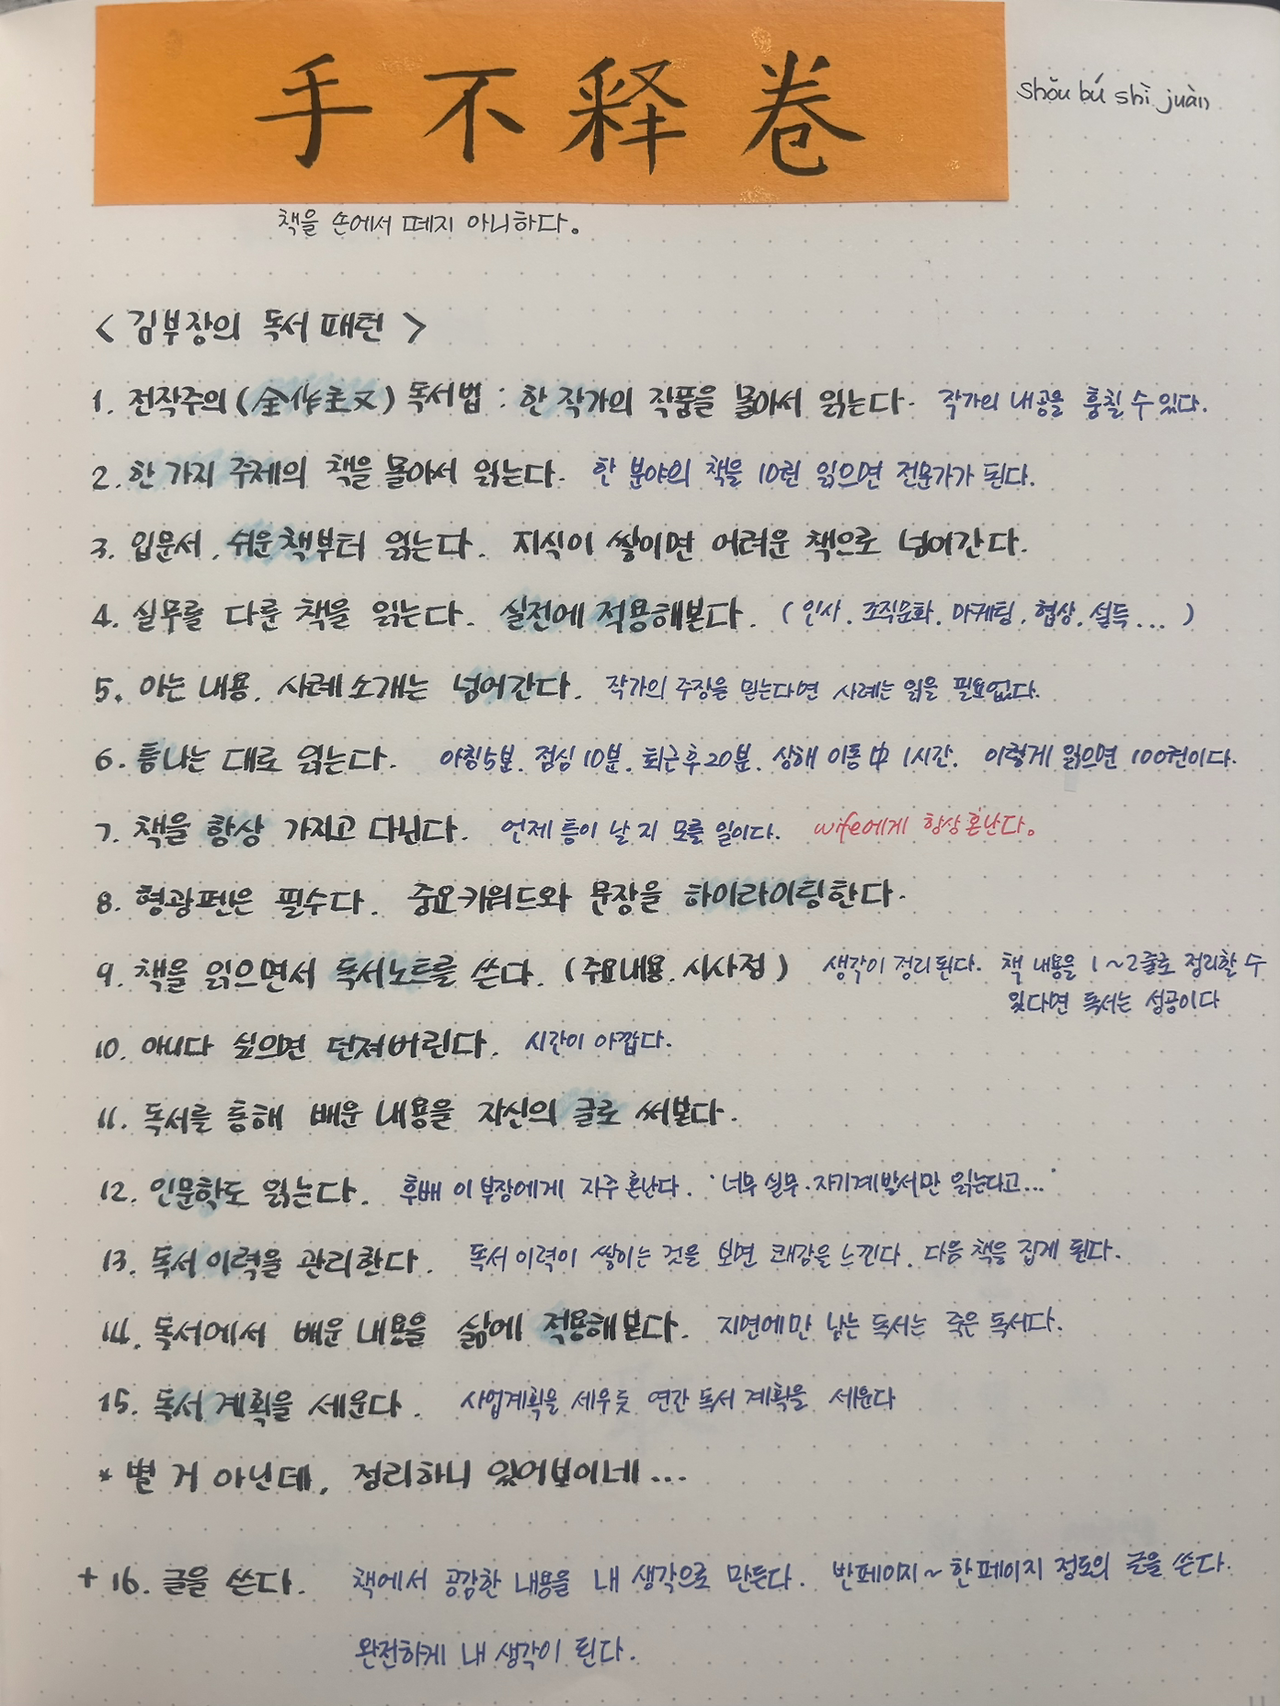 手不释卷 shǒu bú shì juàn
책을 손에서 떼지 아니하다.
< 김부장의 독서 패턴 >
1. 전작주의(全作主文) 독서법 : 한 작가의 작품을 몰아서 읽는다. 작가의 내공을 훔칠 수 있다.
2. 한 가지 주제의 책을 몰아서 읽는다. 한 분야의 책을 10권 읽으면 전문가가 된다.
3. 입문서, 쉬운책부터 읽는다. 지식이 쌓이면 어려운 책으로 넘어간다.
4. 실무를 다룬 책을 읽는다. 실전에 적용해본다. (인사. 조직문화. 마케팅. 협상. 설득...)
5. 아는 내용. 사례소개는 넘어간다. 작가의 주장을 믿는다면 사례는 읽을 필요없다.
6. 틈나는 대로 읽는다. 아침5분. 점심10분. 퇴근후20분. 상해 이동中 1시간. 이렇게 읽으면 100권이다.
7. 책을 항상 가지고 다닌다. 언제 틈이 날 지 모를 일이다. wife에게 항상 혼난다.
8. 형광펜은 필수다. 중요키워드와 문장을 하이라이팅한다.
9. 책을 읽으면서 독서노트를 쓴다. (주요내용. 시사점) 생각이 정리된다. 책 내용을 1~2줄로 정리할 수
있다면 독서는 성공이다
10. 아니다 싶으면 던져버린다. 시간이 아깝다.
11. 독서를 통해 배운 내용을 자신의 글로 써본다.
12. 인문학도 읽는다. 후배 이부장에게 자주 혼난다. '너무 실무.자기계발서만 읽는다고...'
13. 독서 이력을 관리한다. 독서 이력이 쌓이는 것을 보면 쾌감을 느낀다. 다음 책을 집게 된다.
14. 독서에서 배운 내용을 삶에 적용해본다. 지면에만 남는 독서는 죽은 독서다.
15. 독서 계획을 세운다. 사업계획을 세우듯 연간 독서 계획을 세운다
* 별 거 아닌데, 정리하니 있어보이네...
+ 16. 글을 쓴다. 책에서 공감한 내용을 내 생각으로 만든다. 반페이지~한페이지 정도의 글을 쓴다.
완전하게 내 생각이 된다.